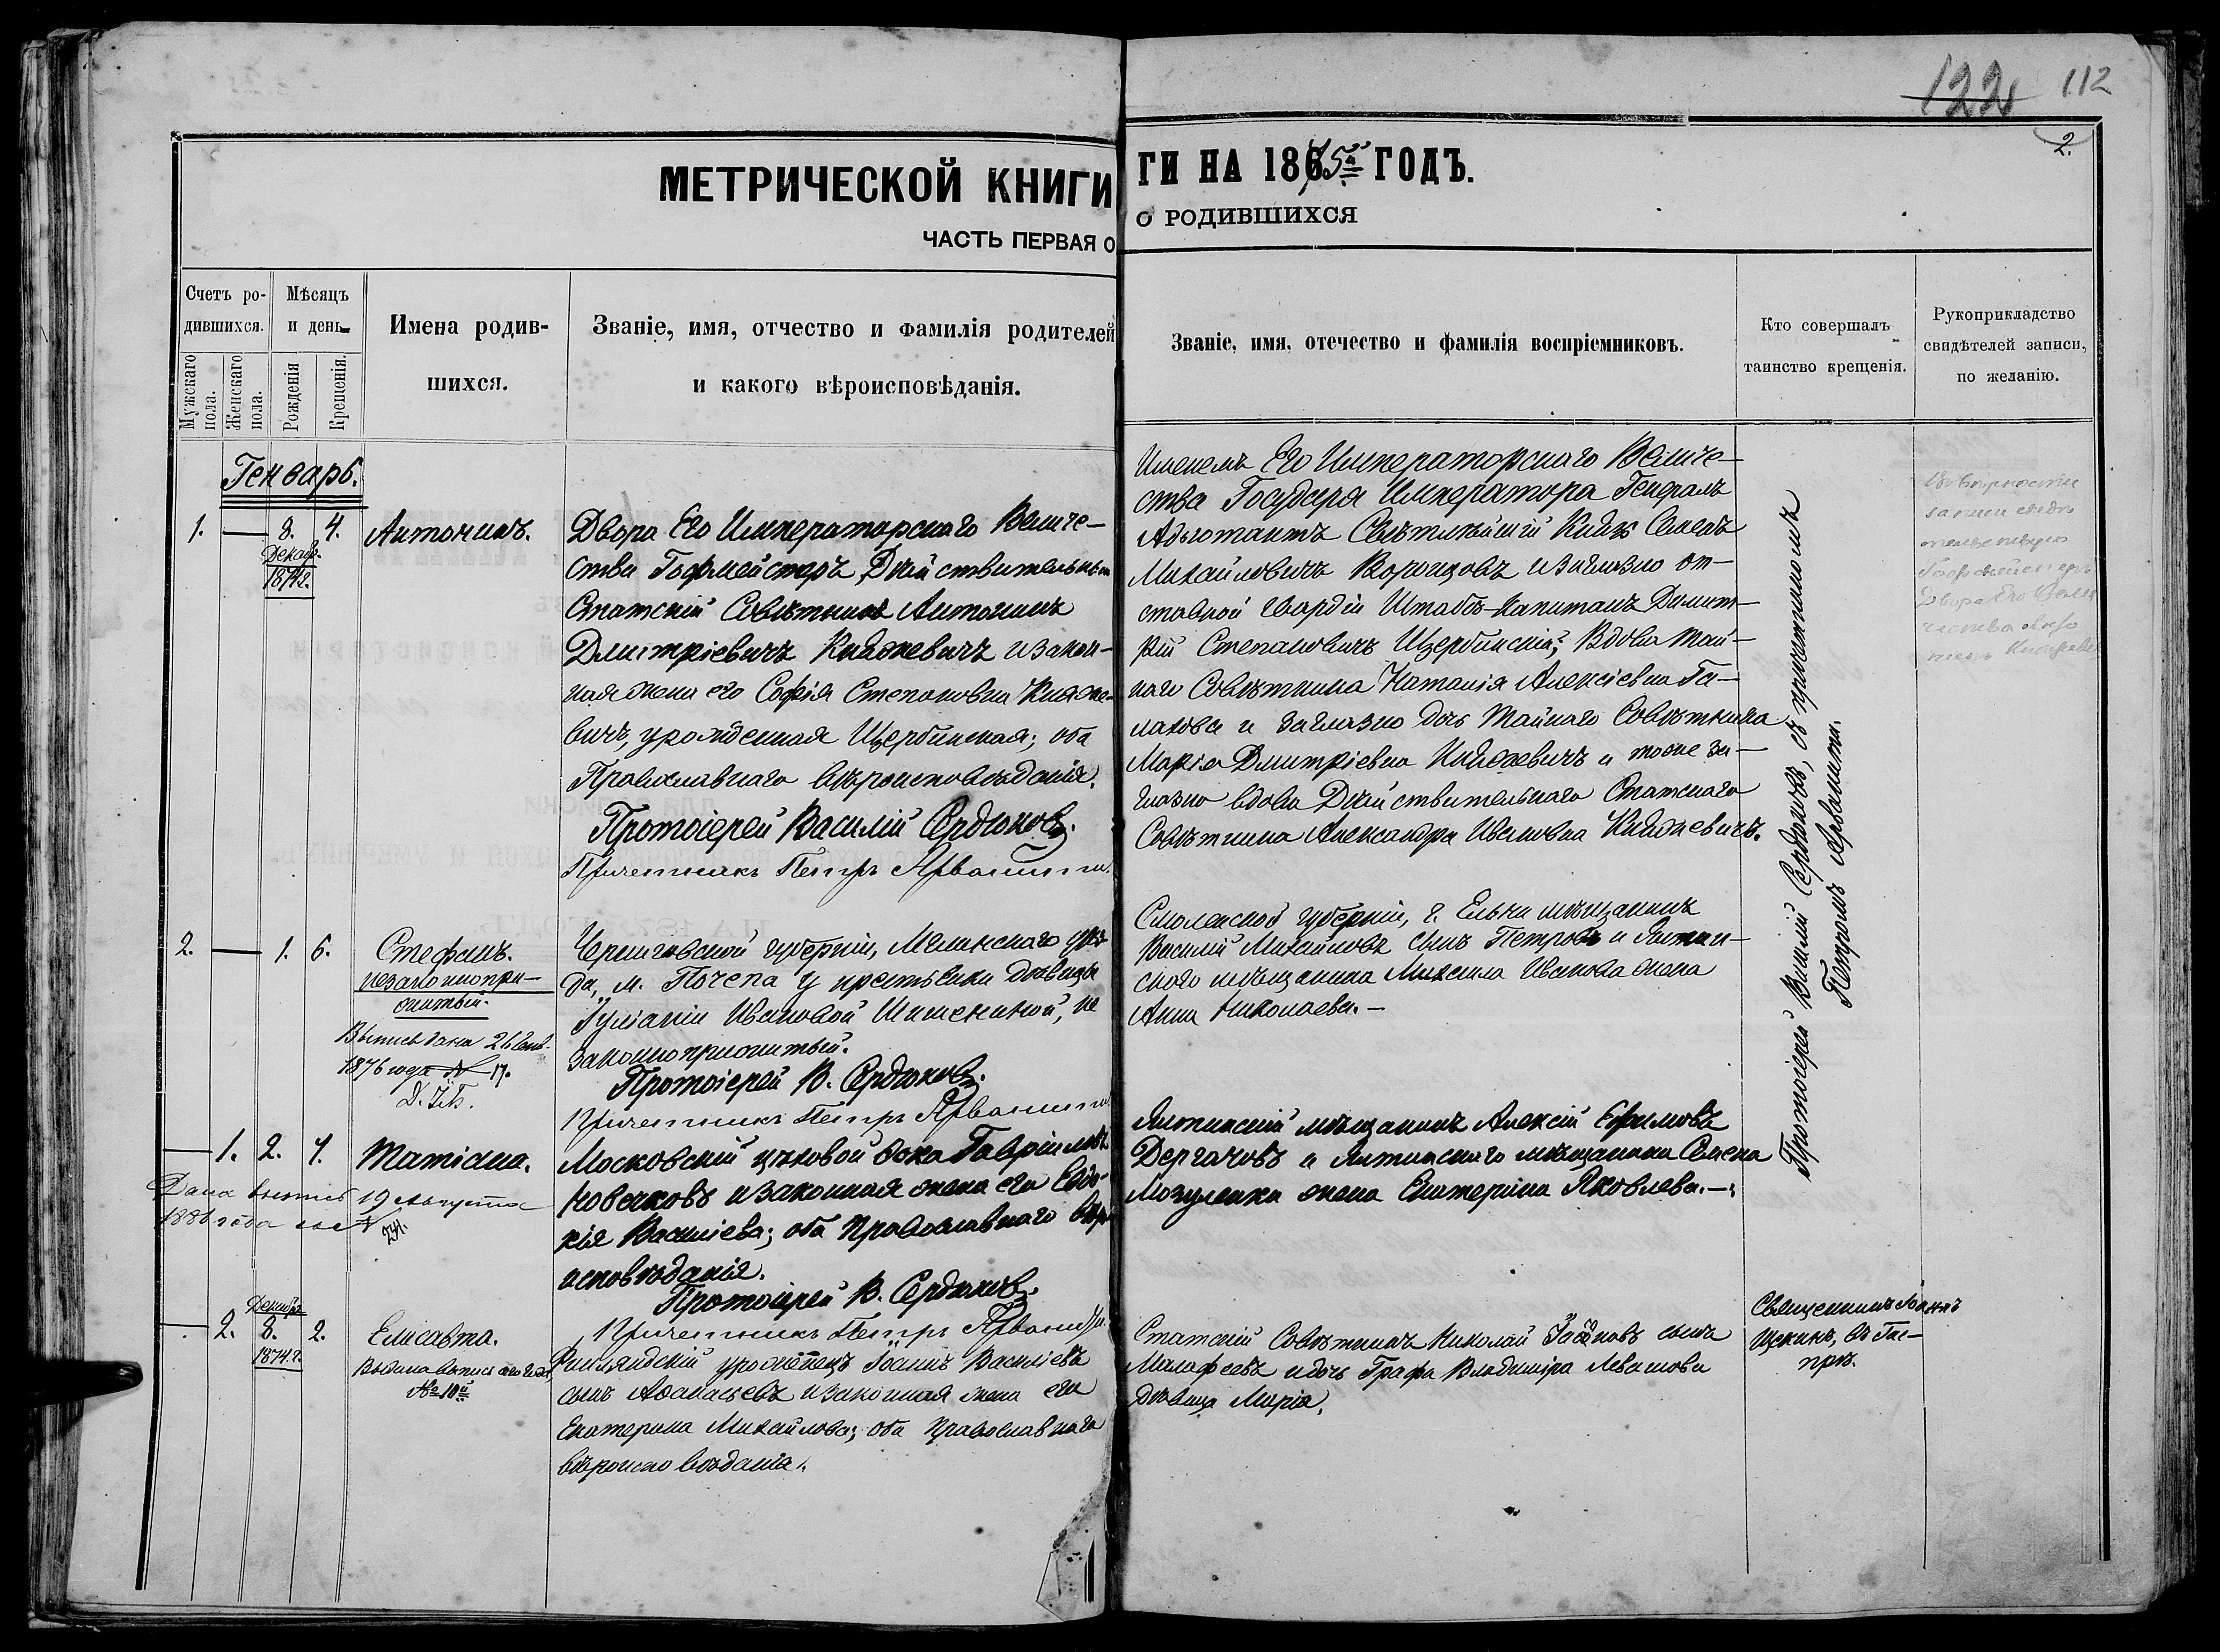 122 112
2.
МЕТРИЧЕСКОЙ КНИГИ
ГИ НА 1875й ГОДЪ.
ЧАСТЬ ПЕРВАЯ О
О РОДИВШИХСЯ
Счетъ родившихся.
Мужскаго пола.
Женскаго пола.
Мѣсяцъ и день
Рожденія
Крещенія.
Имена родив-
шихся.
Званіе, имя, отчество и фамилія родителей
и какого вѣроисповѣданія.
Званіе, имя, отечество и фамилія воспріемниковъ.
Кто совершалъ
таинство крещенія.
Рукоприкладство
свидѣтелей записи,
по желанію.
Генварь.
1. — 8. 4. Антонинъ.
Декабр.
1874 г.
Двора Его Императорскаго Величе-
ства Гофмейстеръ Дѣйствительный
Статскій Совѣтникъ Антонинъ
Дмитріевичъ Княжевичъ и закон-
ная жена его Софія Степановна Княже-
вичъ, урожденная Щербинская; оба
Православнаго вѣроисповѣданія.
Протоіерей Василій Сердюковъ.
Причетникъ Петръ Арванити.
Именемъ Его Императорскаго Величе-
ства Государя Императора Генералъ
Адьютантъ Свѣтлѣйшій Князь Семенъ
Михайловичъ Воронцовъ и заглазно от-
ставной Гвардіи Штабсъ-Капитанъ Димит-
рій Степановичъ Щербинскій; Вдова Тай-
наго Совѣтника Наталія Алексіевна Га-
лахова и заглазно дочь Тайнаго Совѣтника
Марія Дмитріевна Княжевичъ и тоже за-
глазно вдова Дѣйствительнаго Статскаго
Совѣтника Александра Ивановна Княжевичъ.
Протоіерей Василій Сердюковъ, съ причетникомъ
Петромъ Арванити.
2. — 1. 6. Стефанъ.
незаконнопри-
житый.
Выпись дана 26
1876 года № 17.
Черниговской губерніи, Мглинскаго уѣз-
да, м. Почепа у крестьянки дѣвицы
Іуліаніи Ивановой Шишкиной, не
законноприжитый.
Протоіерей В. Сердюковъ.
Причетникъ Петръ Арванити
Смоленской губерніи, г. Ельни мѣщанинъ
Василій Михайловъ сынъ Петровъ и Ялтин-
скаго мѣщанина Михаила Иванова жена
Анна Николаева. —
— 1. 2. 7. Татіана.
Дана выпись 19 Августа
1881 года за №
Московскій цѣховой Фока Гавріиловъ
Новичковъ и законная жена его Евдо-
кія Василіева; оба Православнаго вѣро-
исповѣданія.
Протоіерей В. Сердюковъ.
Причетникъ Петръ Арванити.
Ялтинскій мѣщанинъ Алексій Ефимовъ
Дергачовъ и Ялтинскаго мѣщанина Семена
Мозуленка жена Екатерина Яковлева. —
— 2. 8. 2. Елисавета.
Декабря
1874 г.
Выдана выпись
№ 10й
Финляндскій уроженецъ Іоаннъ Василіевъ
сынъ Аѳанасьевъ и законная жена его
Екатерина Михайлова; оба Православнаго
вѣроисповѣданія.
Статскій Совѣтникъ Николай Іоанновъ сынъ
Малафеевъ и дочь Графа Владиміра Левашова
Дѣвица Марія.
Священникъ Іоаннъ
Щекинъ, въ Гас-
прѣ.